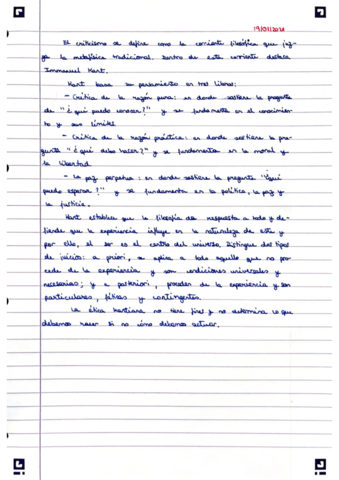 19/03/2021
El criticismo se define como la corriente filosófica que juz-
ga la metafísica tradicional. Dentro de esta corriente destaca
Immanuel Kant.
Kant basa su pensamiento en tres libros:
- Crítica de la razón pura: en donde sostiene la pregunta
de "¿qué puedo conocer?" y se fundamenta en el conocimien-
to y sus límites.
- Crítica de la razón práctica: en donde sostiene la pre-
gunta "¿qué debo hacer?" y se fundamenta en la moral y
la libertad.
- La paz perpetua: en donde sostiene la pregunta "¿qué
puedo esperar?" y se fundamenta en la política, la paz y
la justicia.
Kant establece que la filosofía da respuesta a todo y de-
fiende que la experiencia influye en la naturaleza de esta y
por ello, el ser es el centro del universo. Distingue dos tipos
de juicios: a priori, se aplica a todo aquello que no pro-
cede de la experiencia y son condiciones universales y
necesarias; y a posteriori, proceden de la experiencia y son
particulares, y contingentes.
La ética kantiana no tiene fines y no determina lo que
debemos hacer si no cómo debemos actuar.